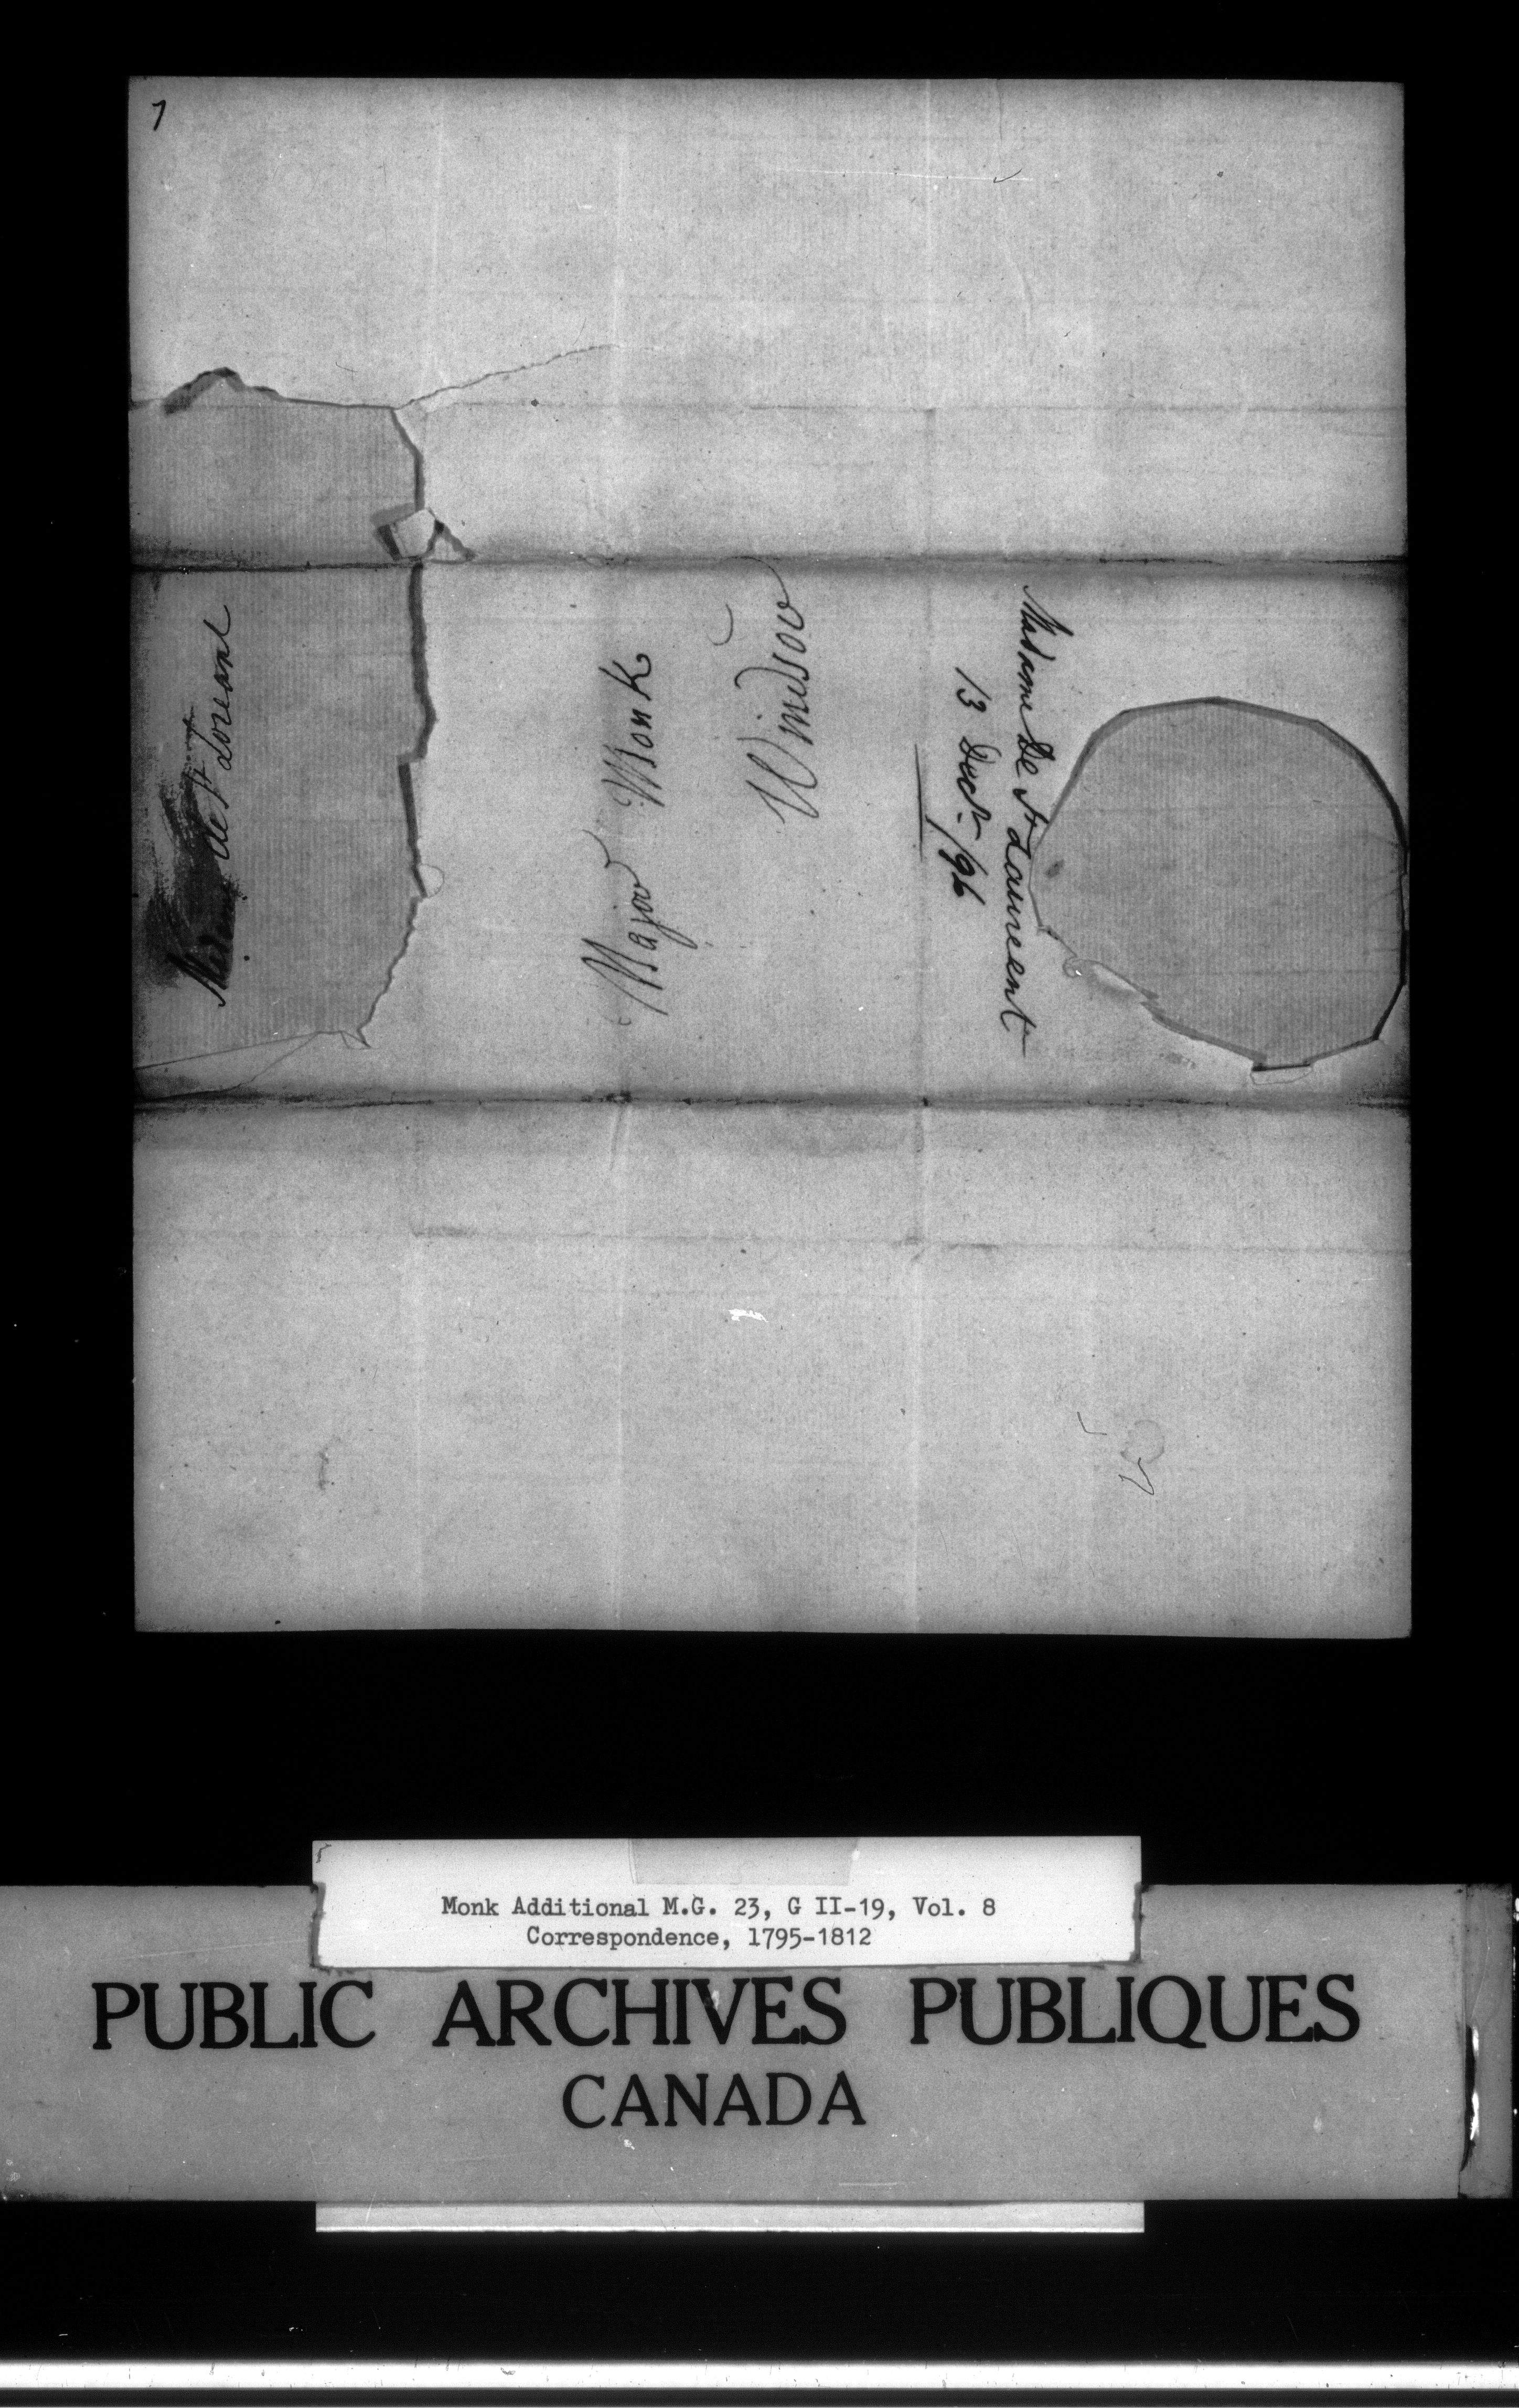 7
Madame de St Loreant
Major Monk
Windsor
Madame De St Laureent
13 Decr /96
Monk Additional M.G. 23, G II-19, Vol. 8
Correspondence, 1795-1812
PUBLIC ARCHIVES PUBLIQUES
CANADA